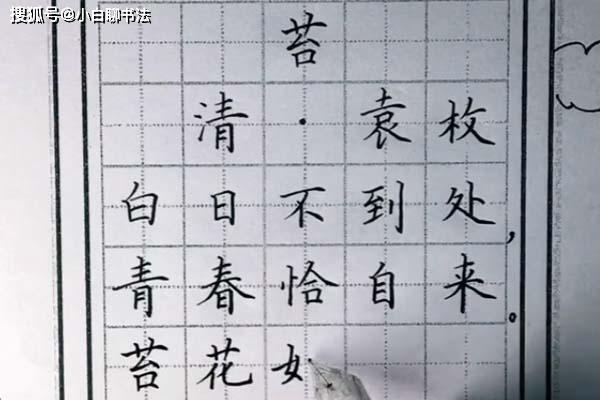 搜狐号@小白聊书法
苔
清·袁枚
白日不到处，
青春恰自来。
苔花